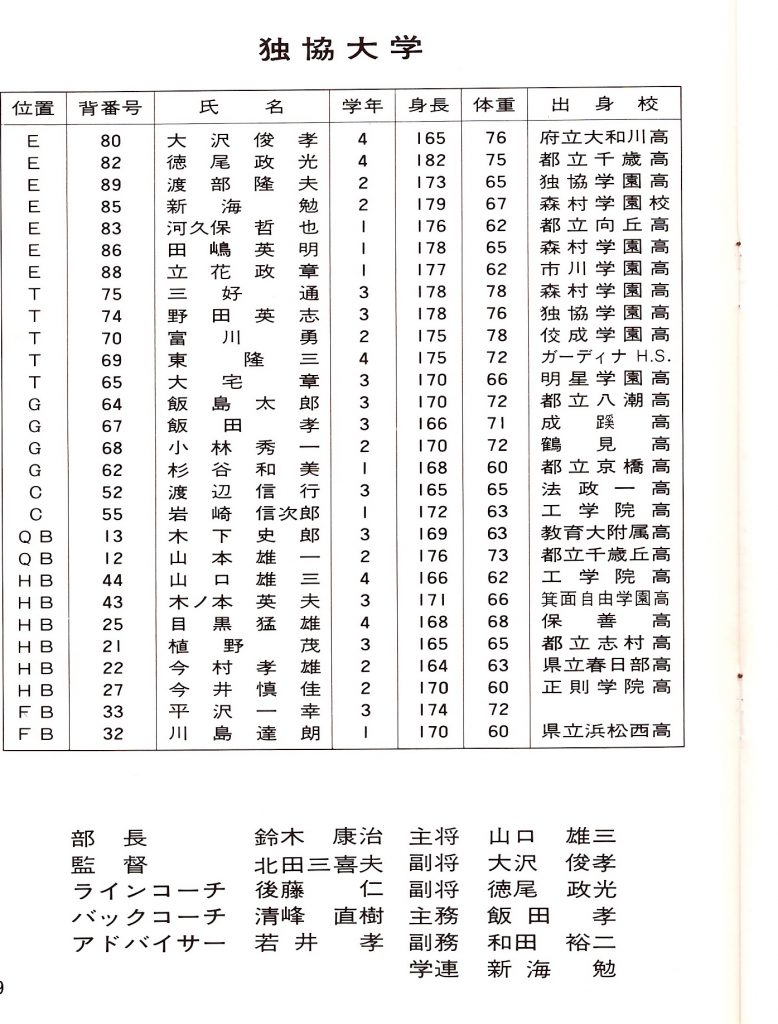 独協大学
位置 背番号 氏名 学年 身長 体重 出身校
E 80 大沢俊孝 4 165 76 府立大和川高
E 82 徳尾政光 4 182 75 都立千歳高
E 89 渡部隆夫 2 173 65 独協学園高
E 85 新海勉 2 179 67 森村学園校
E 83 河久保哲也 1 176 62 都立向丘高
E 86 田嶋英明 1 178 65 森村学園高
E 88 立花政章 1 177 62 市川学園高
T 75 三好通 3 178 78 森村学園高
T 74 野田英志 3 178 76 独協学園高
T 70 富川勇 2 175 78 佼成学園高
T 69 東隆三 4 175 72 ガーディナH.S.
T 65 大宅章 3 170 66 明星学園高
G 64 飯島太郎 3 170 72 都立八潮高
G 67 飯田孝 3 166 71 成蹊高
G 68 小林秀一 2 170 72 鶴見高
G 62 杉谷和美 1 168 60 都立京橋高
C 52 渡辺信行 3 165 65 法政一高
C 55 岩崎信次郎 1 172 63 工学院高
QB 13 木下史郎 3 169 63 教育大附属高
QB 12 山本雄一 2 176 73 都立千歳丘高
HB 44 山口雄三 4 166 62 工学院高
HB 43 木ノ本英夫 3 171 66 箕面自由学園高
HB 25 目黒猛雄 4 168 68 保善高
HB 21 植野茂 3 165 65 都立志村高
HB 22 今村孝雄 2 164 63 県立春日部高
HB 27 今井慎佳 2 170 60 正則学院高
FB 33 平沢一幸 3 174 72
FB 32 川島達朗 1 170 60 県立浜松西高
部長 鈴木康治 主将 山口雄三
監督 北田三喜夫 副将 大沢俊孝
ラインコーチ 後藤仁 副将 徳尾政光
バックコーチ 清峰直樹 主務 飯田孝
アドバイサー 若井孝 副務 和田裕二
学連 新海勉
9